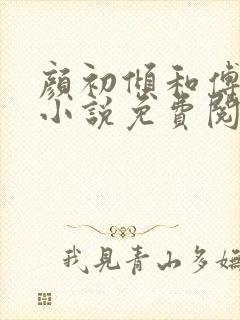 顏初傾和傅
小說免費閱
我見青山多嫵